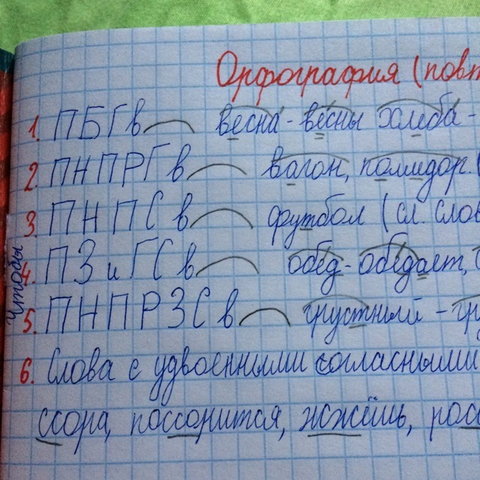 Орфография (повт
1. ПБГ в весна - вёсны хлеба -
2. ПНПРГ в вагон, помидор (
3. ПНПС в футбол (сл. слов
Чтобы
4. ПЗ и ГС в обед - обедает,
5. ПНПРЗС в грустный - гр
6. Слова с удвоенными согласными
ссора, поссорится, жжёшь, рос